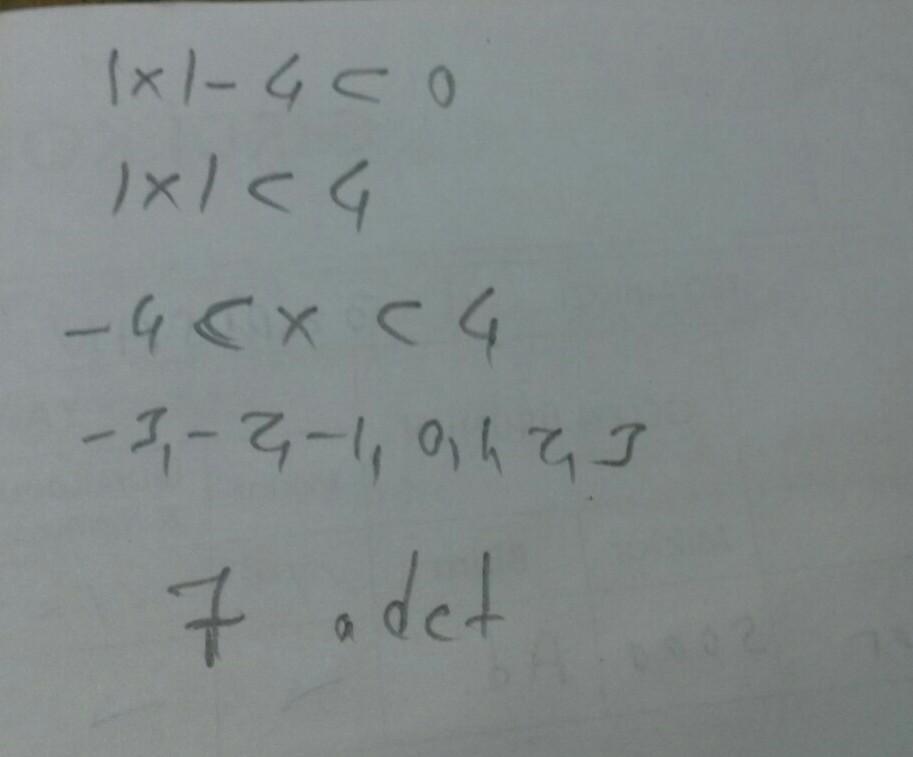 |x| - 4 < 0
|x| < 4
-4 < x < 4
-3, -2, -1, 0, 1, 2, 3
7 adet